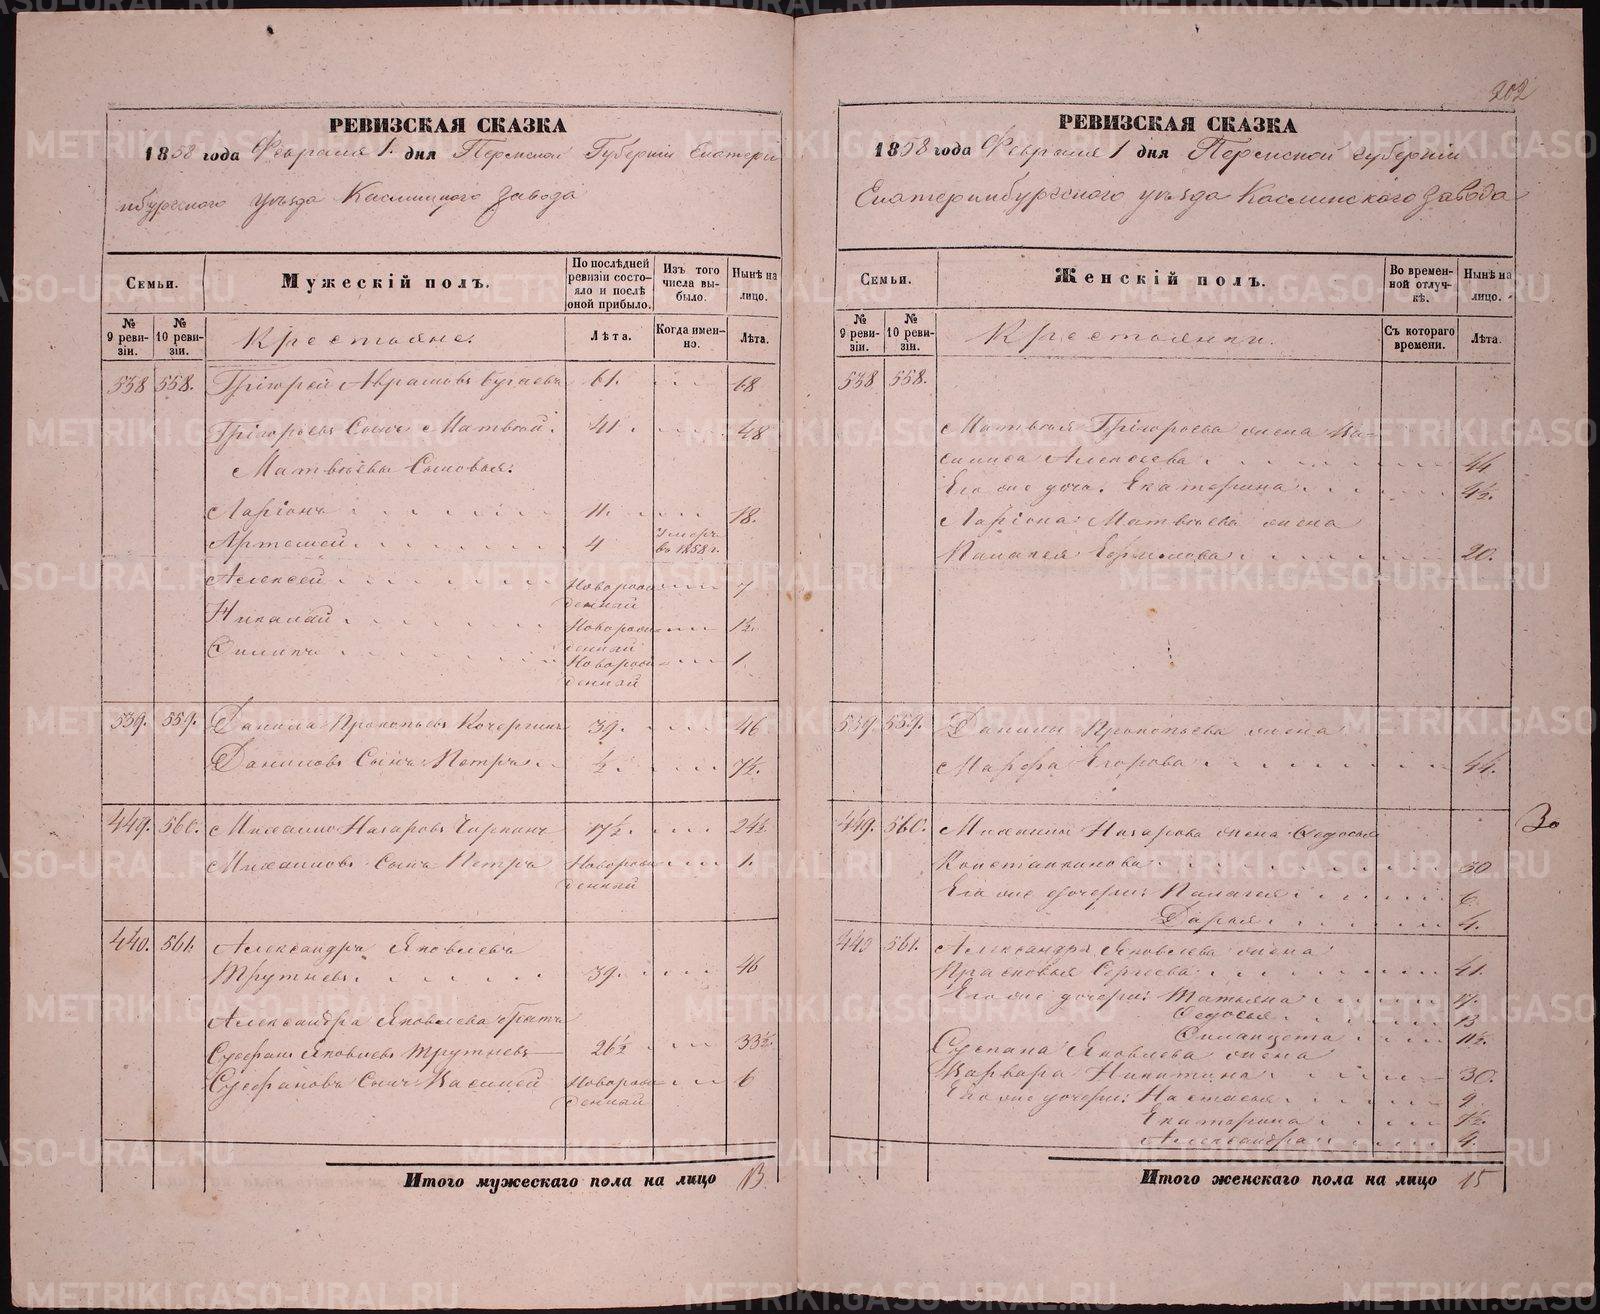 РЕВИЗСКАЯ СКАЗКА
1858 года Февраля 1. дня Пермской Губерніи Екатери
нбургского уѣзда Каслинского завода
Семьи.
Мужескій полъ.
По послѣдней ревизіи состояло и послѣ оной прибыло.
Изъ того числа выбыло.
Нынѣ на лицо.
№ 9 ревизіи.
№ 10 ревизіи.
Крестьяне:
Лѣта.
Когда именно.
Лѣта.
538 558. Грігорей Аврамовъ 61. 68
Грігорьевъ Сынъ Матвѣй. 41. 48
Матвѣевы Сыновья:
Ларіонъ 11. 18.
Артемей 4 Умеръ въ 1858 г.
Алексей Новорожденный 7
Николай Новорожденный 1½.
Филипъ Новорожденный 1.
539. 559. Данила Прокопьевъ Кочергинъ 39. 46
Даниловъ Сынъ Петръ ½. 7½.
449. 560. Михаило Назаровъ 17½. 24½.
Михаиловъ Сынъ Петръ Новорожденный 1.
440. 561. Александръ Яковлевъ
Трутневъ 39. 46
Александра Яковлева братъ
Стефанъ Яковлевъ Трутневъ 26½ 33½.
Стефановъ Сынъ Василей Новорожденный 6
Итого мужескаго пола на лицо 13.
202
РЕВИЗСКАЯ СКАЗКА
1858 года Февраля 1 дня Пермской губерніи
Екатеринбургского уѣзда Каслинского завода
Семьи.
Женскій полъ.
Во временной отлучкѣ.
Нынѣ на лицо.
№ 9 ревизіи.
№ 10 ревизіи.
Крестьянки.
Съ котораго времени.
Лѣта.
538 558.
Матвѣя Грігорьева жена Ва-
силиса Алексеева 44
Его же дочь. Екатерина 4½.
Ларіона Матвѣева жена
Палагея Ефимова 20.
539. 559. Данилы Прокопьева жена
Марфа Егорова 44.
449. 560. Михаилы Назарова жена Федосья
Константинова 30
Его же дочери: Палагея 6.
Дарья 4.
440 561. Александра Яковлева жена
Прасковья Сергеева 41.
Его же дочери: Татьяна 17.
Федосья 13
11½.
Степана Яковлева жена
Варвара Никитина 30.
Его же дочери: Настасья 9
Екатерина 7½.
Александра 4.
Итого женскаго пола на лицо 15
METRIKI.GASO-URAL.RU